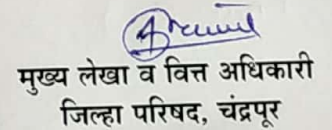 मुख्य लेखा व वित्त अधिकारी
जिल्हा परिषद, चंद्रपूर